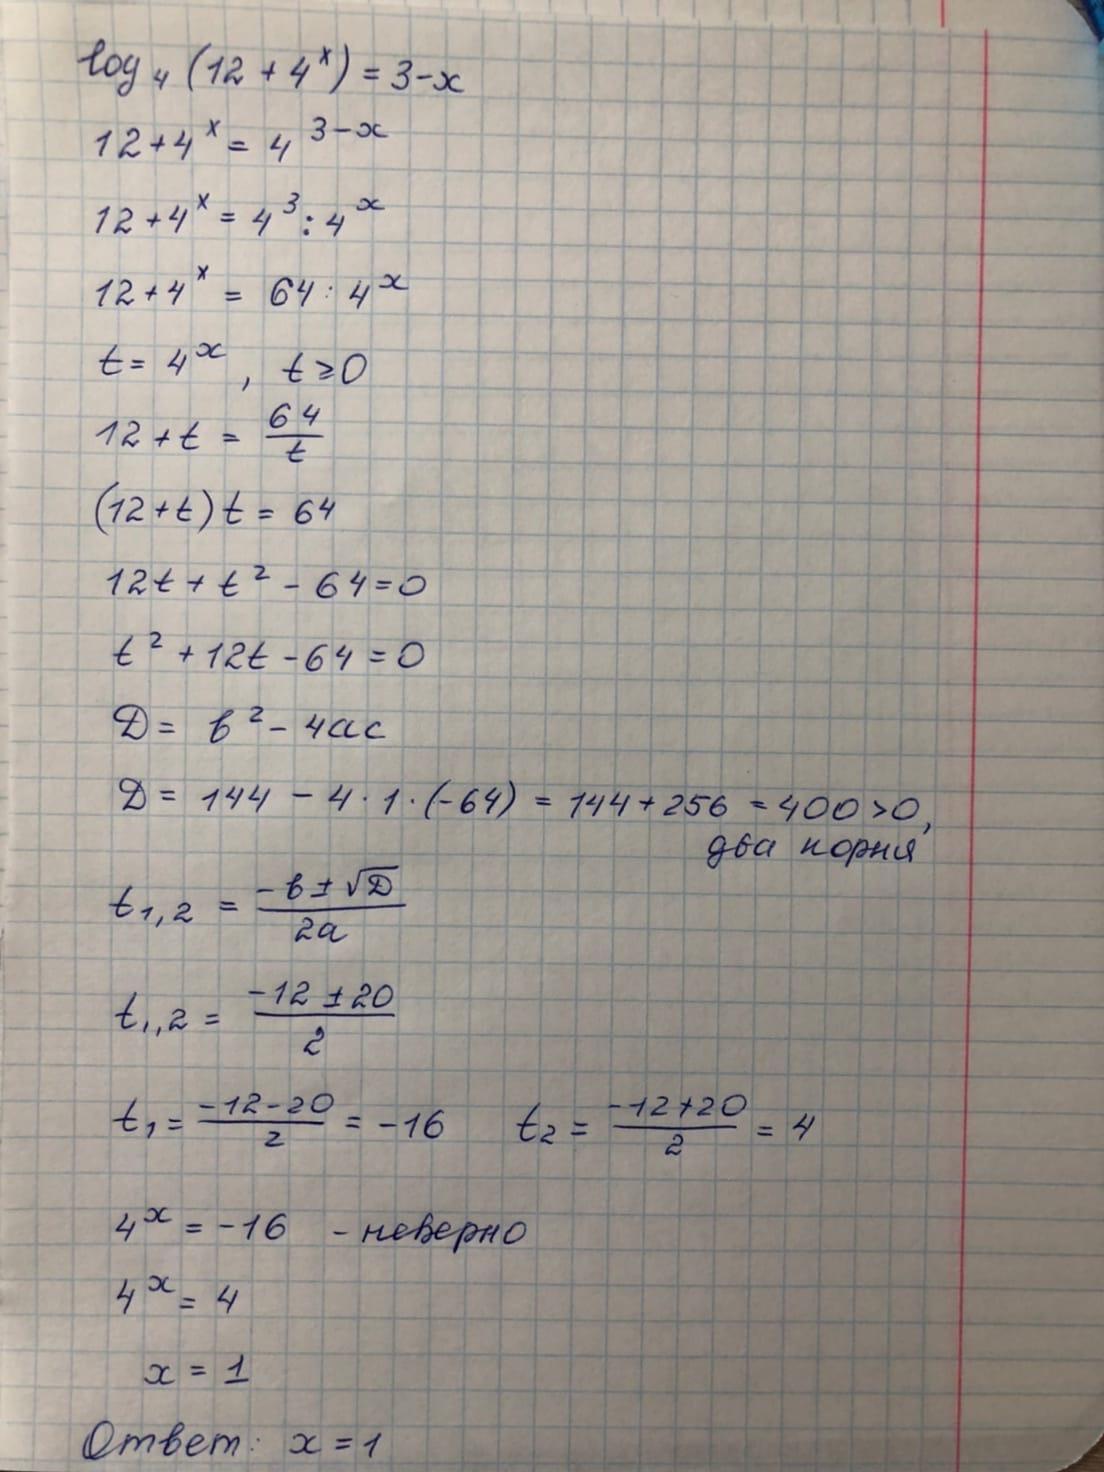 log₄ (12 + 4ˣ) = 3-x
12 + 4ˣ = 4³⁻ˣ
12 + 4ˣ = 4³ : 4ˣ
12 + 4ˣ = 64 : 4ˣ
t = 4ˣ, t ≥ 0
12 + t = 64/t
(12 + t) t = 64
12t + t² - 64 = 0
t² + 12t - 64 = 0
D = b² - 4ac
D = 144 - 4 · 1 · (-64) = 144 + 256 = 400 > 0,
два корня
t₁,₂ = (-b ± √D)/2a
t₁,₂ = (-12 ± 20)/2
t₁ = (-12-20)/2 = -16 t₂ = (-12+20)/2 = 4
4ˣ = -16 - неверно
4ˣ = 4
x = 1
Ответ: x = 1